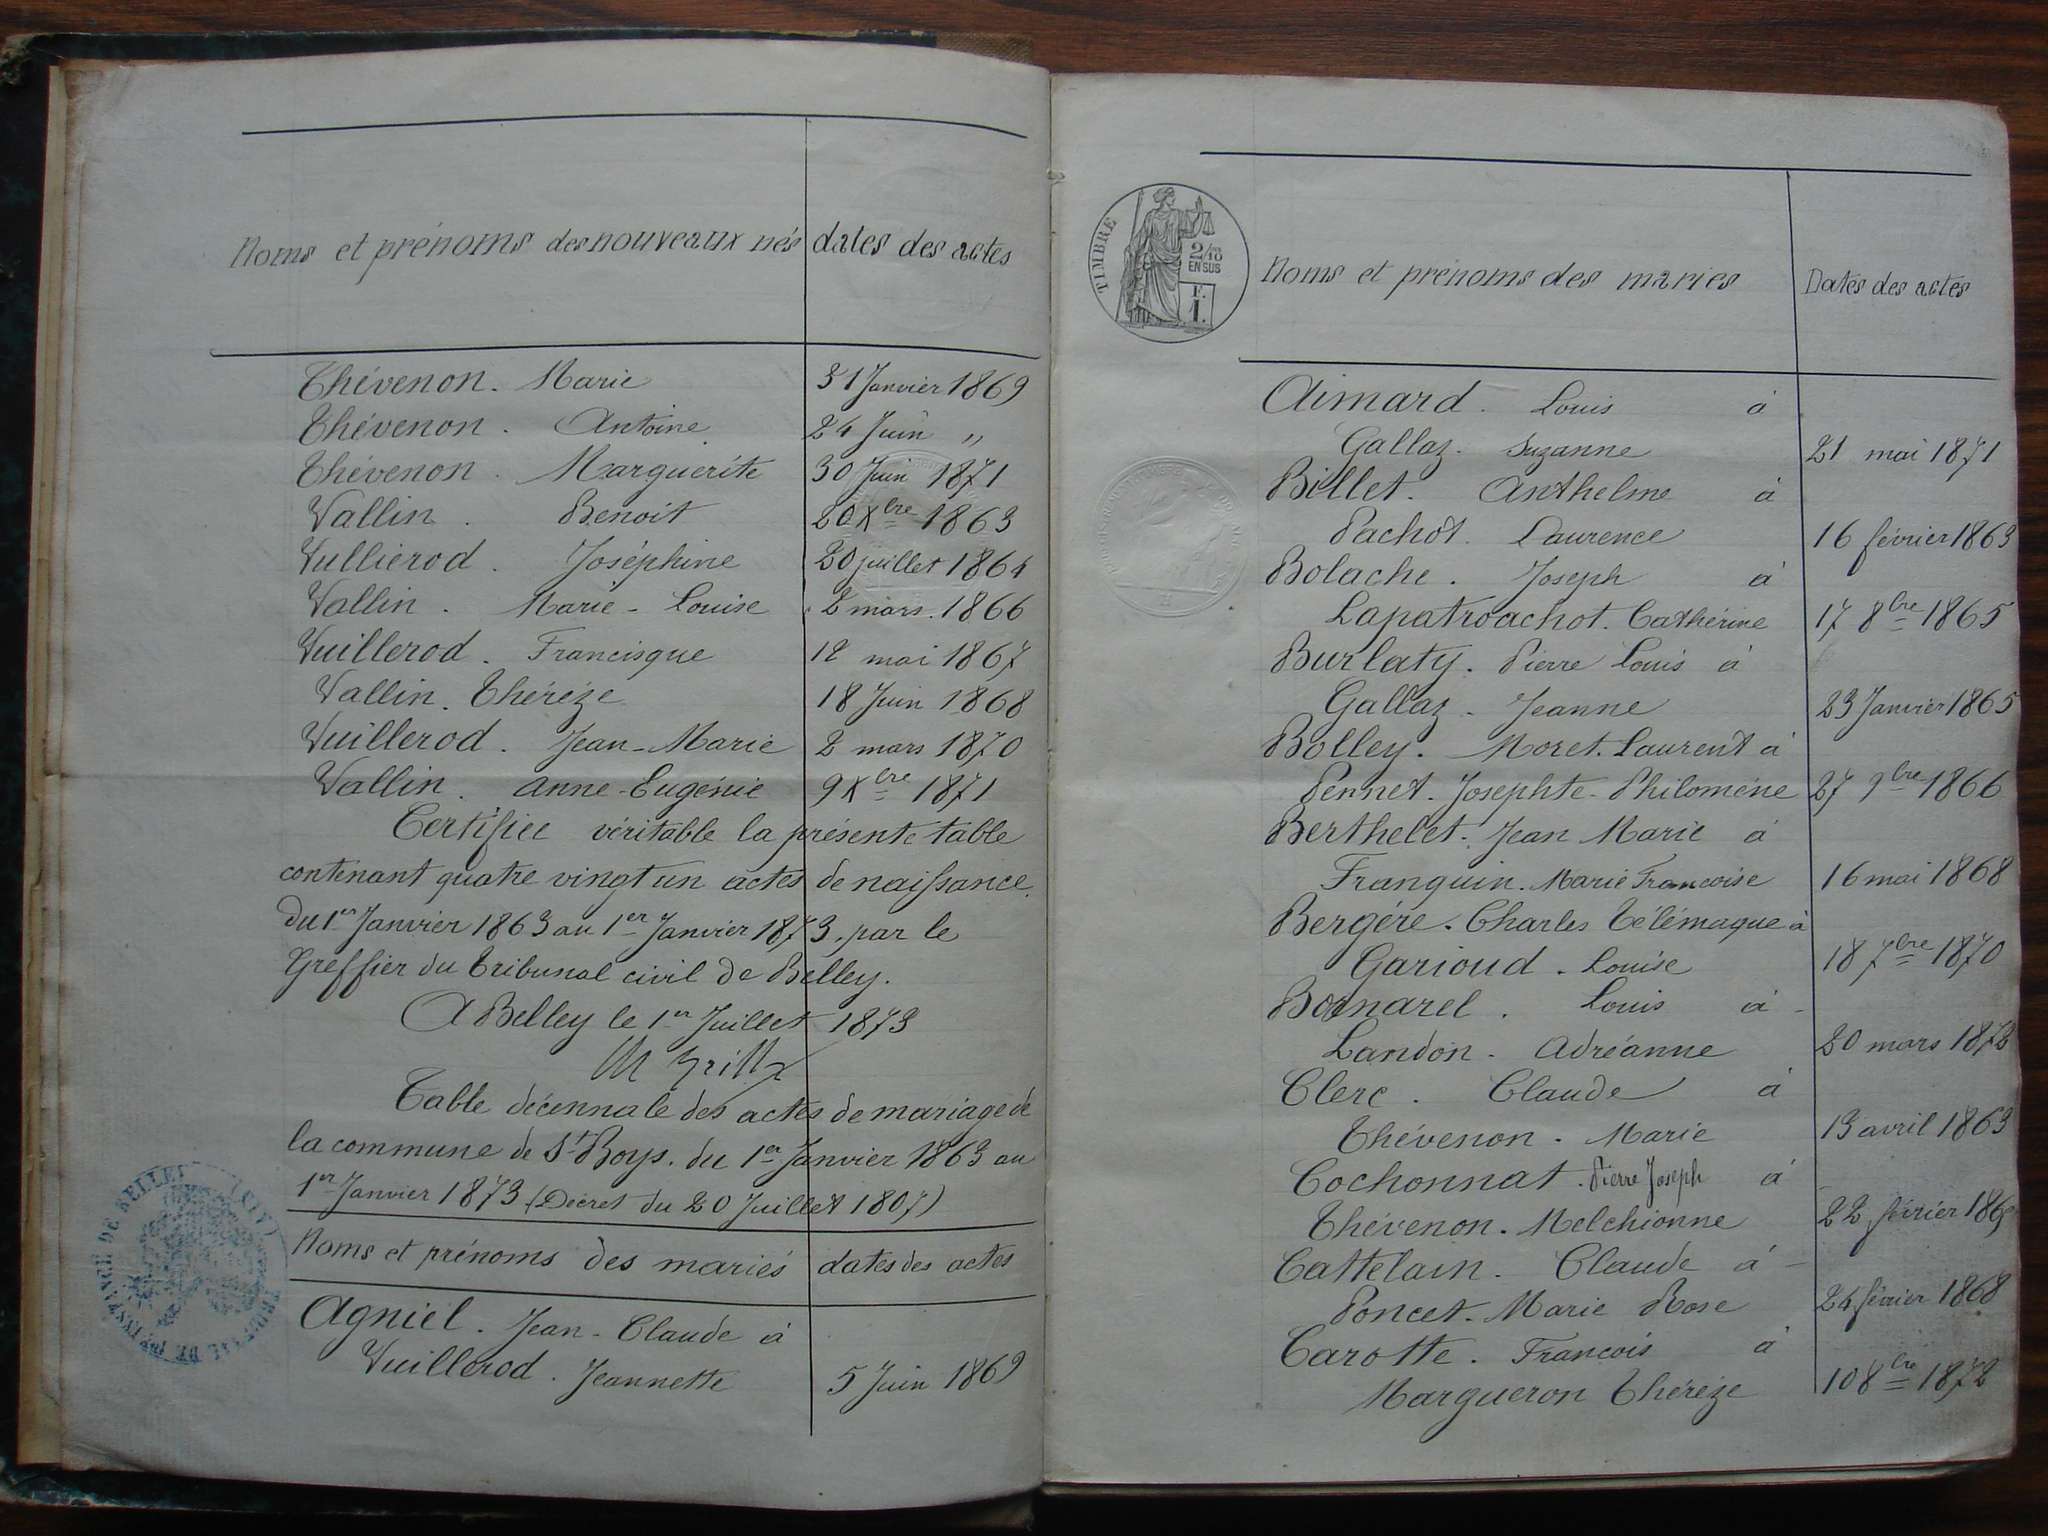 Noms et prénoms des nouveaux nés dates des actes
Thévenon. Marie 31 Janvier 1869
Thévenon. Antoine 24 Juin "
Thévenon. Marguerite 30 Juin 1871
Vallin. Benoit 20 Xbre 1863
Vullierod. Joséphine 20 juillet 1864
Vallin. Marie-Louise 2 mars. 1866
Vuillerod. Francisque 12 mai 1867
Vallin. Thérèze 18 Juin 1868
Vuillerod. Jean-Marie 2 mars 1870
Vallin. Anne-Eugénie 9 Xbre 1871
Certifiée véritable la présente table
contenant quatre vingt un actes de naissance.
du 1er Janvier 1863 au 1er Janvier 1873, par le
Greffier du tribunal civil de Belley.
A Belley le 1er Juillet 1873
Table décennale des actes de mariage de
la commune de St Boys. du 1er Janvier 1863 au
1er Janvier 1873 (Décret du 20 Juillet 1807)
Noms et prénoms des mariés dates des actes
Agniel. Jean-Claude à
Vuillerod. Jeannette 5 Juin 1869
TIMBRE
2/10
EN SUS
F.
1.
Noms et prénoms des mariés Dates des actes
Aimard. Louis à
Gallaz. Suzanne 21 mai 1871
Billet. Anthelme à
Pachot. Laurence 16 février 1863
Bolache. Joseph à
Lapatroachot. Cathérine 17 8bre 1865
Burlaty. Pierre Louis à
Gallaz. Jeanne 23 Janvier 1865
Bolley. Moret. Laurent à
Pennet. Josephte-Philomène 27 9bre 1866
Berthelet. Jean Marie à
Franquin. Marie Francoise 16 mai 1868
Bergére. Charles Télémaque à
Garioud. Louise 18 7bre 1870
Bornarel. Louis à
Landon. Adréanne 20 mars 1872
Clerc. Claude à
Thévenon. Marie 13 avril 1863
Cochonnat. Pierre Joseph à
Thévenon. Melchionne 22 février
Cattelain. Claude à
Poncet. Marie Rose 24 février 1868
Carotte. Francois à
Margueron Thérèze 10 8bre 1872